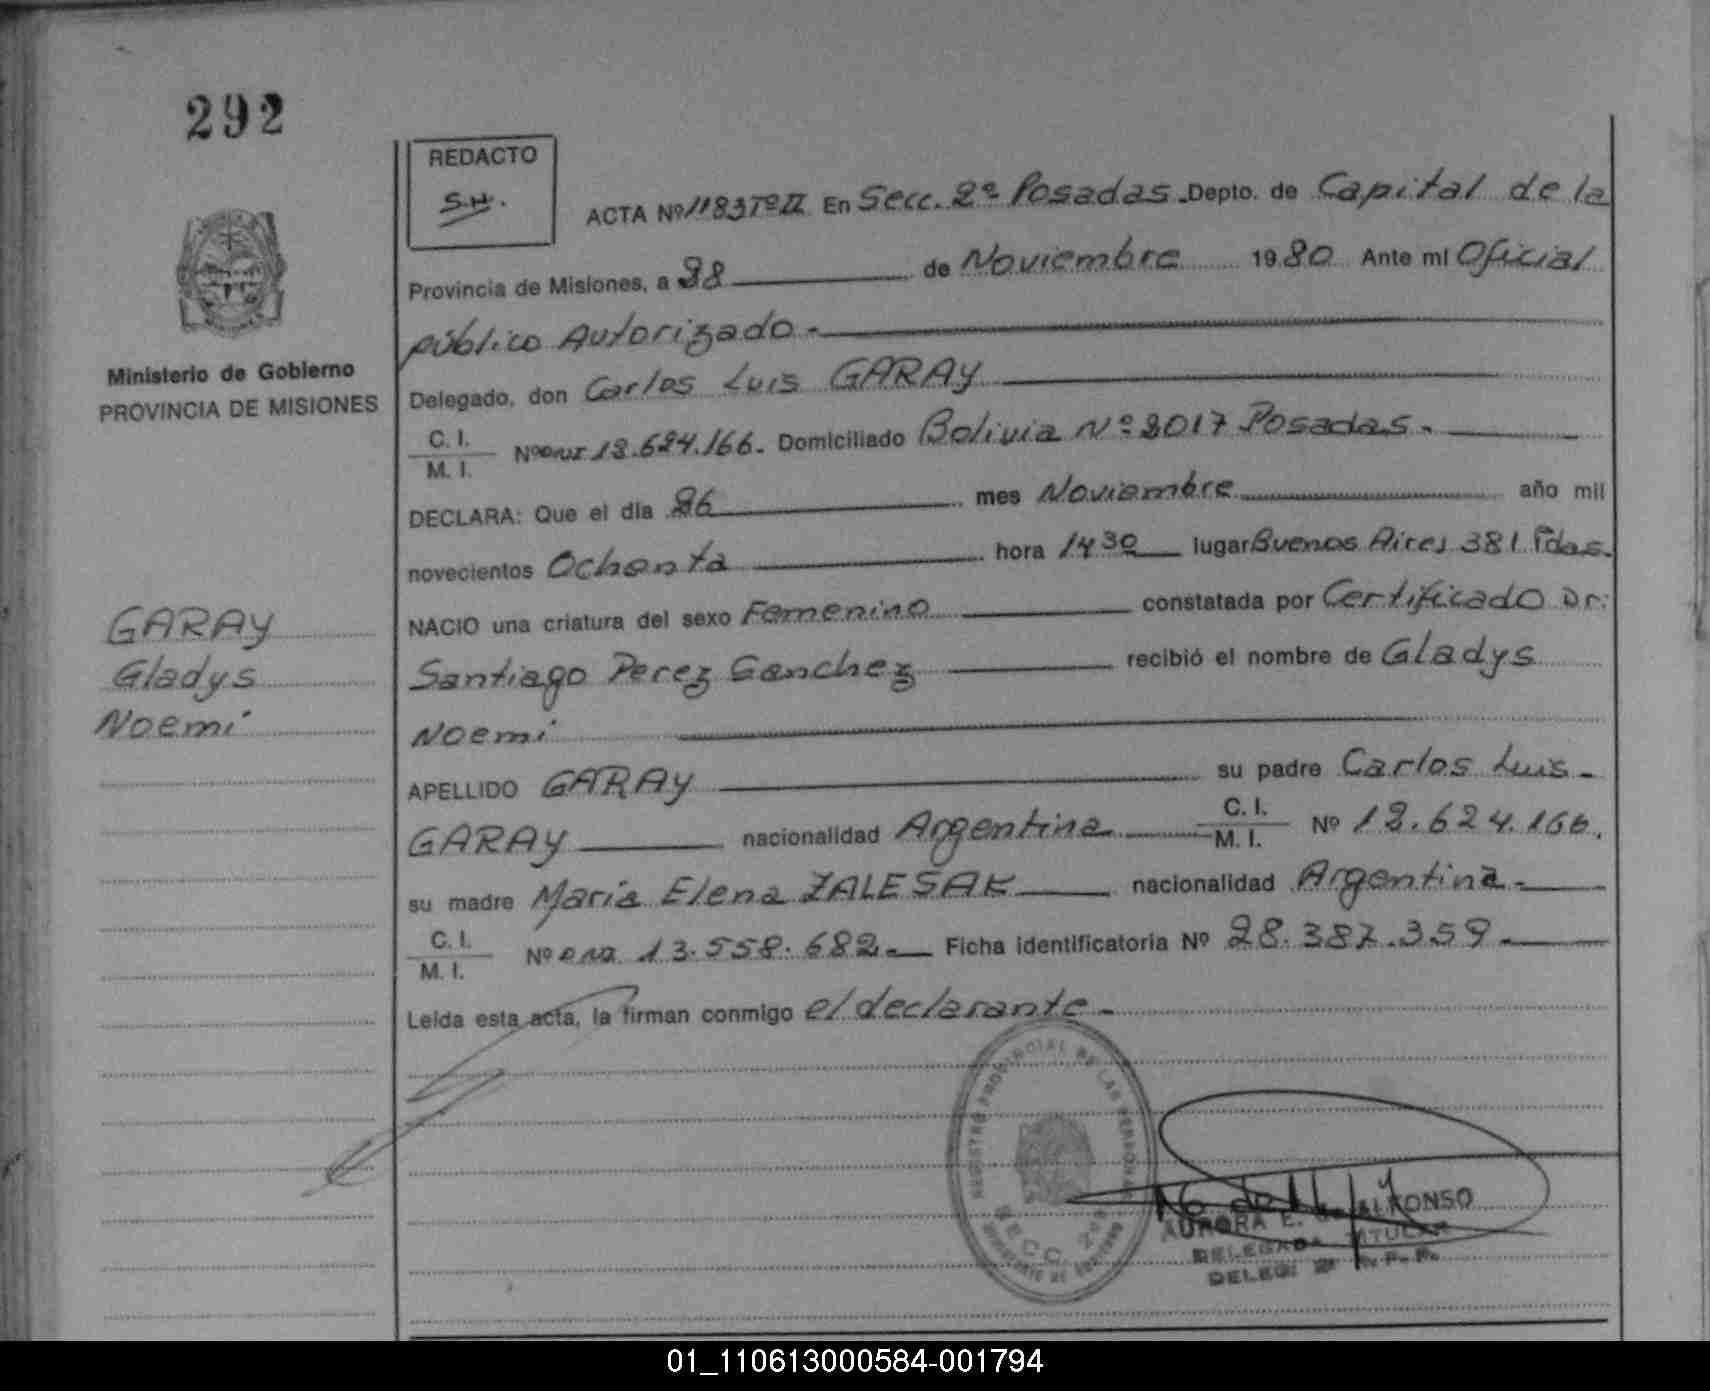 292
REDACTO
S.H.
ACTA Nº 1183 Tº II En Secc. 2ª Posadas. Depto. de Capital de la
Provincia de Misiones, a 28 de Noviembre 1980 Ante mi Oficial
público Autorizado.-
Ministerio de Gobierno
PROVINCIA DE MISIONES
Delegado, don Carlos Luis GARAY
C. I.
M. I. Nº DNI 12.624.166. Domiciliado Bolivia Nº 2017 Posadas.-
DECLARA: Que el dia 26 mes Noviembre año mil
novecientos Ochenta hora 1430 lugar Buenos Aires 381 Pdas.
GARAY
Gladys
Noemi
NACIO una criatura del sexo Femenino constatada por Certificado Dr:
Santiago Perez Sanchez recibió el nombre de Gladys
Noemi
APELLIDO GARAY su padre Carlos Luis-
GARAY nacionalidad Argentina C. I. M. I. Nº 12.624.166.
su madre Maria Elena ZALESAK nacionalidad Argentina.-
C. I.
M. I. Nº DNI 13.558.682.- Ficha identificatoria Nº 28.387.359.-
Leida esta acta, la firman conmigo el declarante.-
REGISTRO PROVINCIAL DE LAS PERSONAS
SECC. 2ª
MINISTERIO DE GOBIERNO
AURORA E. ALFONSO
DELEGADA TITULAR
DELEG. 2ª R.P.P.
01_110613000584-001794